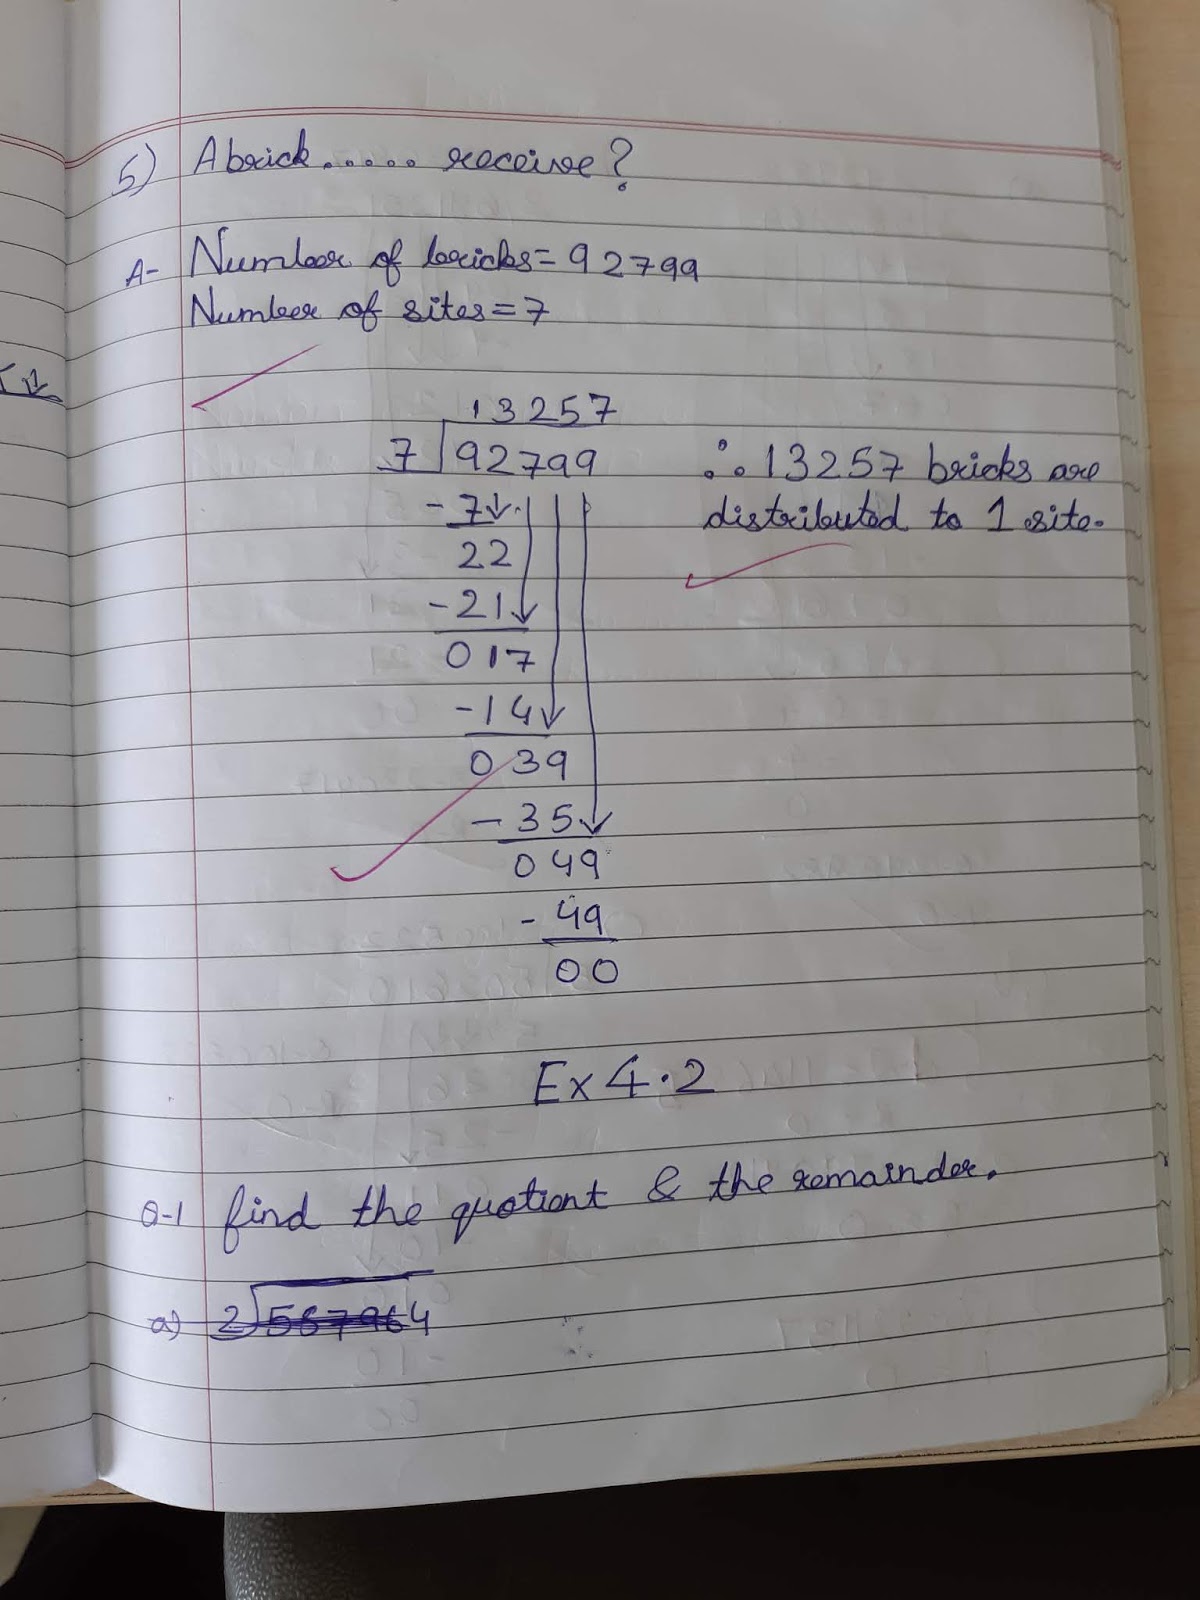 5) A brick..... receive?
A- Number of bricks = 92799
Number of sites = 7
13257
7 92799
- 7
22
- 21
017
- 14
039
- 35
049
- 49
00
∴ 13257 bricks are
distributed to 1 site.
Ex 4.2
Q-1 find the quotient & the remainder.
a) 2 567964